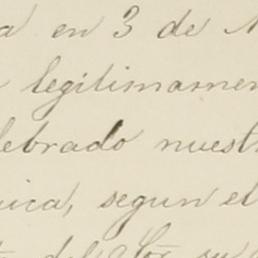 a en 3 de
legitimamen
lebrado nuest
ica, segun el